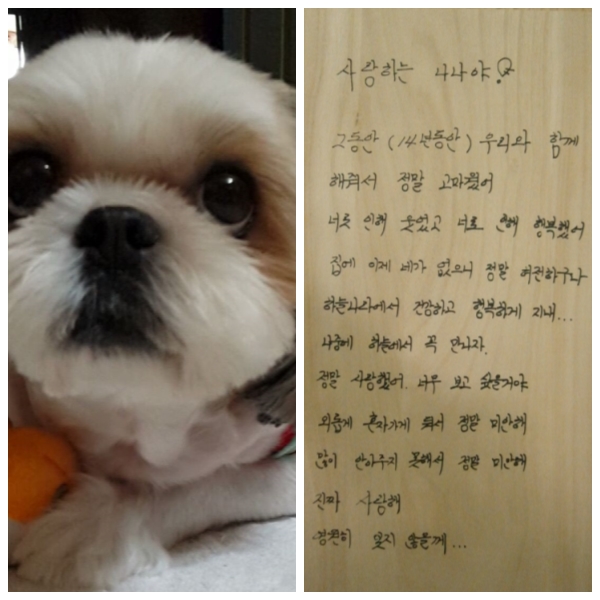 사랑하는 나나야
그동안 (14년동안) 우리와 함께
해줘서 정말 고마웠어
너로 인해 웃었고 너로 인해 행복했어
집에 이제 네가 없으니 정말 허전하구나
하늘나라에서 건강하고 행복하게 지내...
나중에 하늘에서 꼭 만나자.
정말 사랑했어. 너무 보고 싶을거야
외롭게 혼자가게 해서 정말 미안해
많이 안아주지 못해서 정말 미안해
진짜 사랑해
영원히 잊지 않을께...